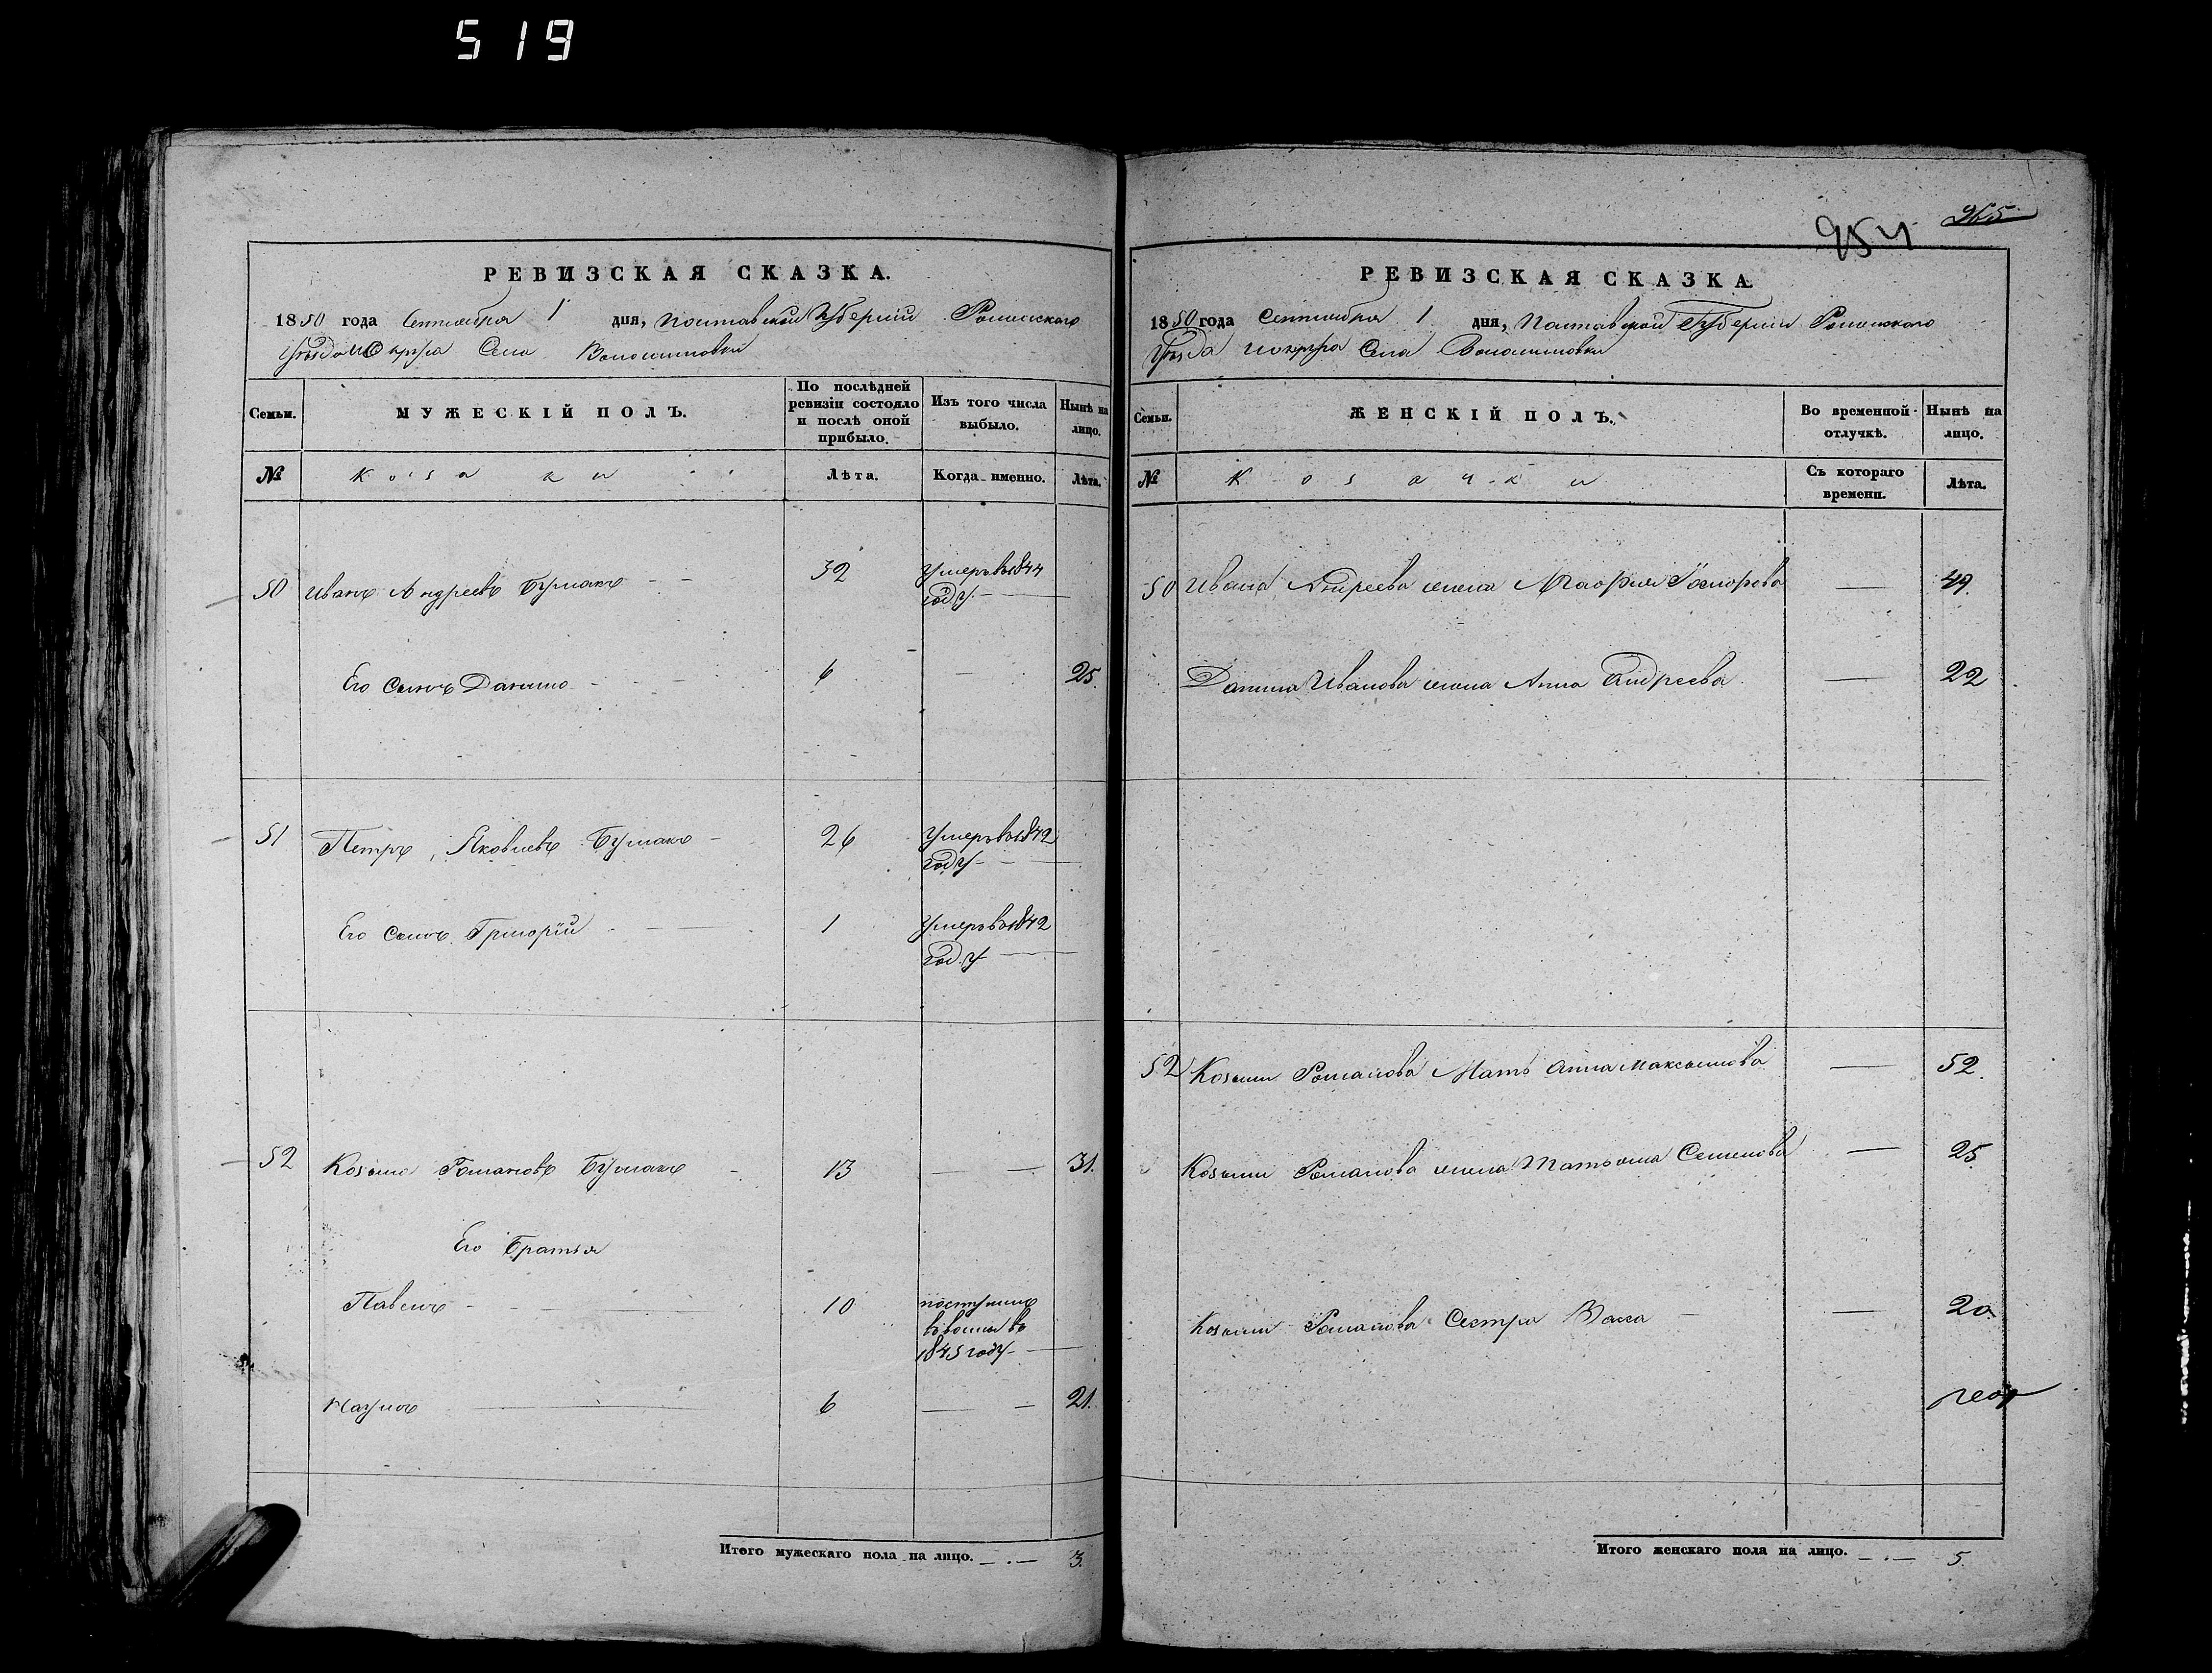 519
954
965
РЕВИЗСКАЯ СКАЗКА.
1850 года Сентября 1 дня, Полтавской Губернии Роменского
Уезда и Округа Села Волошиновки
Семьи.
МУЖЕСКІЙ ПОЛЪ.
По послѣдней ревизіи состояло и послѣ оной прибыло.
Изъ того числа выбыло.
Нынѣ на лицо.
№
Козаки
Лѣта.
Когда именно.
Лѣта.
50 Иванъ Андреевъ Бурмакъ 32 Умеръ въ 1844
году
Его Сынъ Данило 6 25.
51 Петръ Яковлевъ 26 Умеръ въ 1842
году
Его Сынъ Григорій 1 Умеръ въ 1842
году
52 Козьма Романовъ 13 31.
Его Братья
Павелъ 10 поступилъ
въ
1845 году
Наумъ 6 21.
Итого мужескаго пола на лицо. 3.
РЕВИЗСКАЯ СКАЗКА.
1850 года Сентября 1 дня, Полтавской Губернии Роменского
Уезда и округа Села Волошиновки
Семьи.
ЖЕНСКІЙ ПОЛЪ.
Во временной отлучкѣ.
Нынѣ на лицо.
№
Козачки
Съ котораго времени.
Лѣта.
50 Ивана Андреева жена Мария 49.
Данила Иванова жена Анна Андреева 22
52 Козьмы Романова Мать Анна Максимова 52.
Козьмы Романова жена Татьяна Семенова 25.
Козьмы Романова Сестра Васса 20.
Итого женскаго пола на лицо. 5.